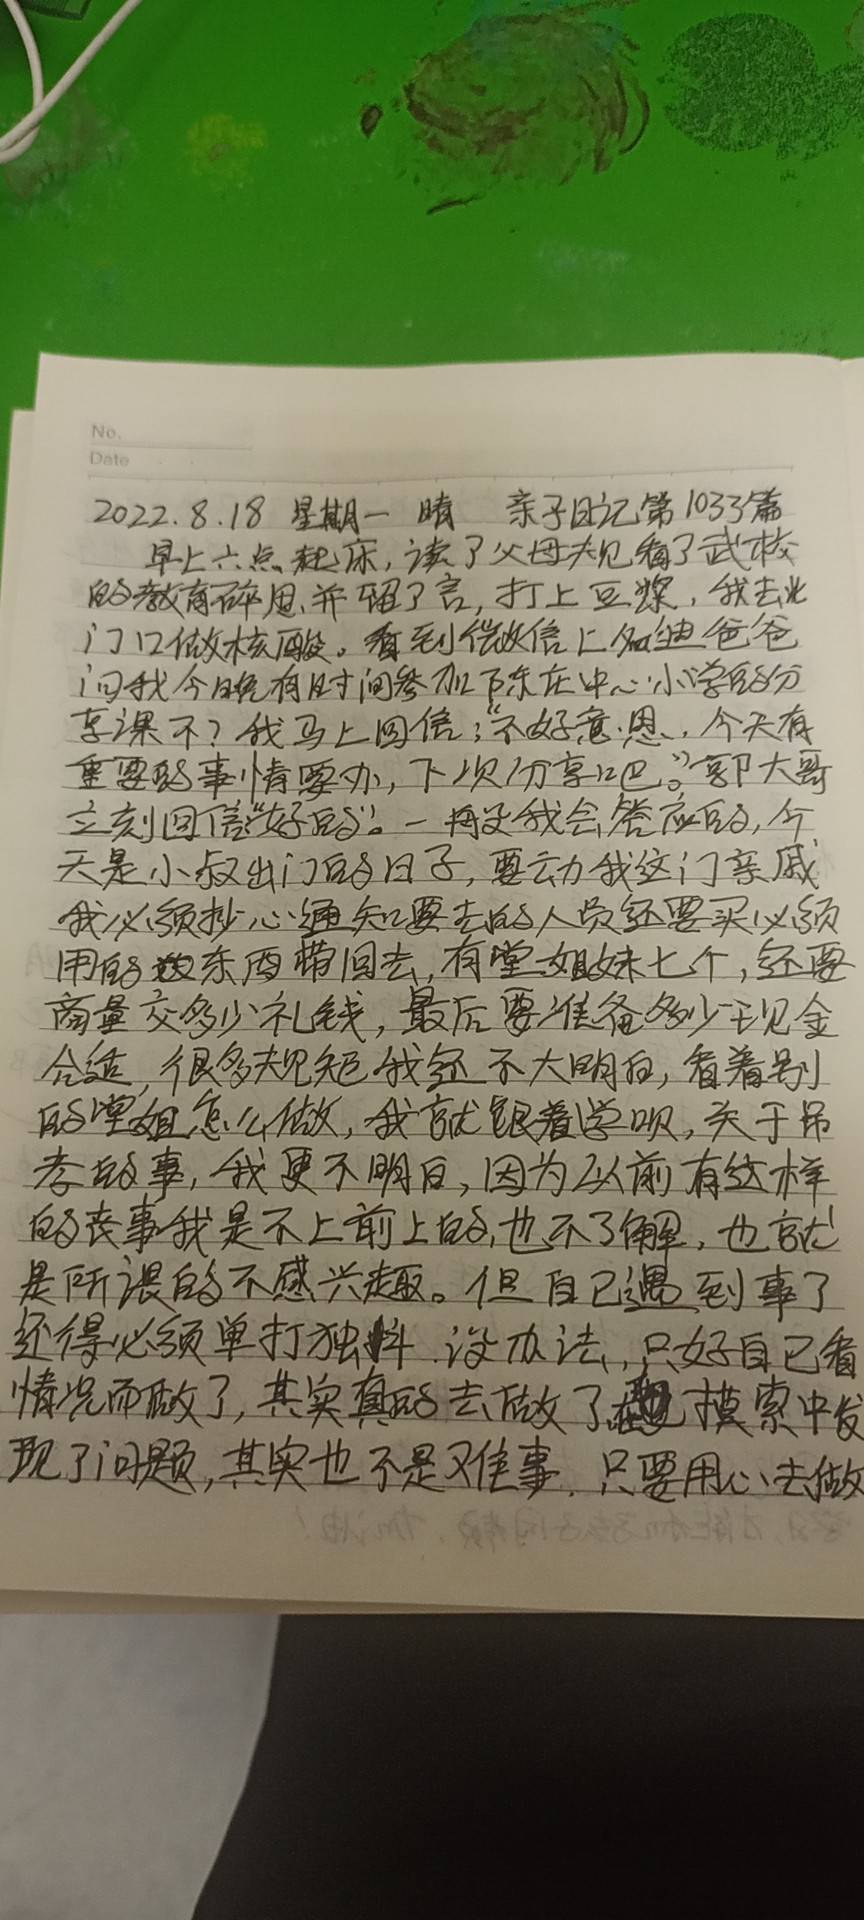 No.
Date
2022.8.18 星期一 晴 亲子日记第1033篇
早上六点起床,读了父母规看了武校
的教育碎思,并留了言,打上豆浆,我去北
门口做核酸。看到微信上 爸爸
问我今晚有时间参加下东庄中心小学的分
享课不?我马上回信:“不好意思,今天有
重要的事情要办,下次分享吧。”郭大哥
立刻回信“好的”。一般我会答应的,今
天是小叔出门的日子,要动我这门亲戚
我必须抄心通知要去的人员还要买必须
用的东西带回去,有堂姐妹七个,还要
商量交多少礼钱,最后要准备多少现金
合适,很多规矩我还不大明白,看着别
的堂姐怎么做,我就跟着学呗,关于吊
孝的事,我更不明白,因为以前有这样
的丧事我是不上前上的,也不了解,也就
是所谓的不感兴趣。但自己遇到事了
还得必须单打独斗.没办法,只好自己看
情况而做了,其实真的去做了 摸索中发
现了问题,其实也不是难事.只要用心去做